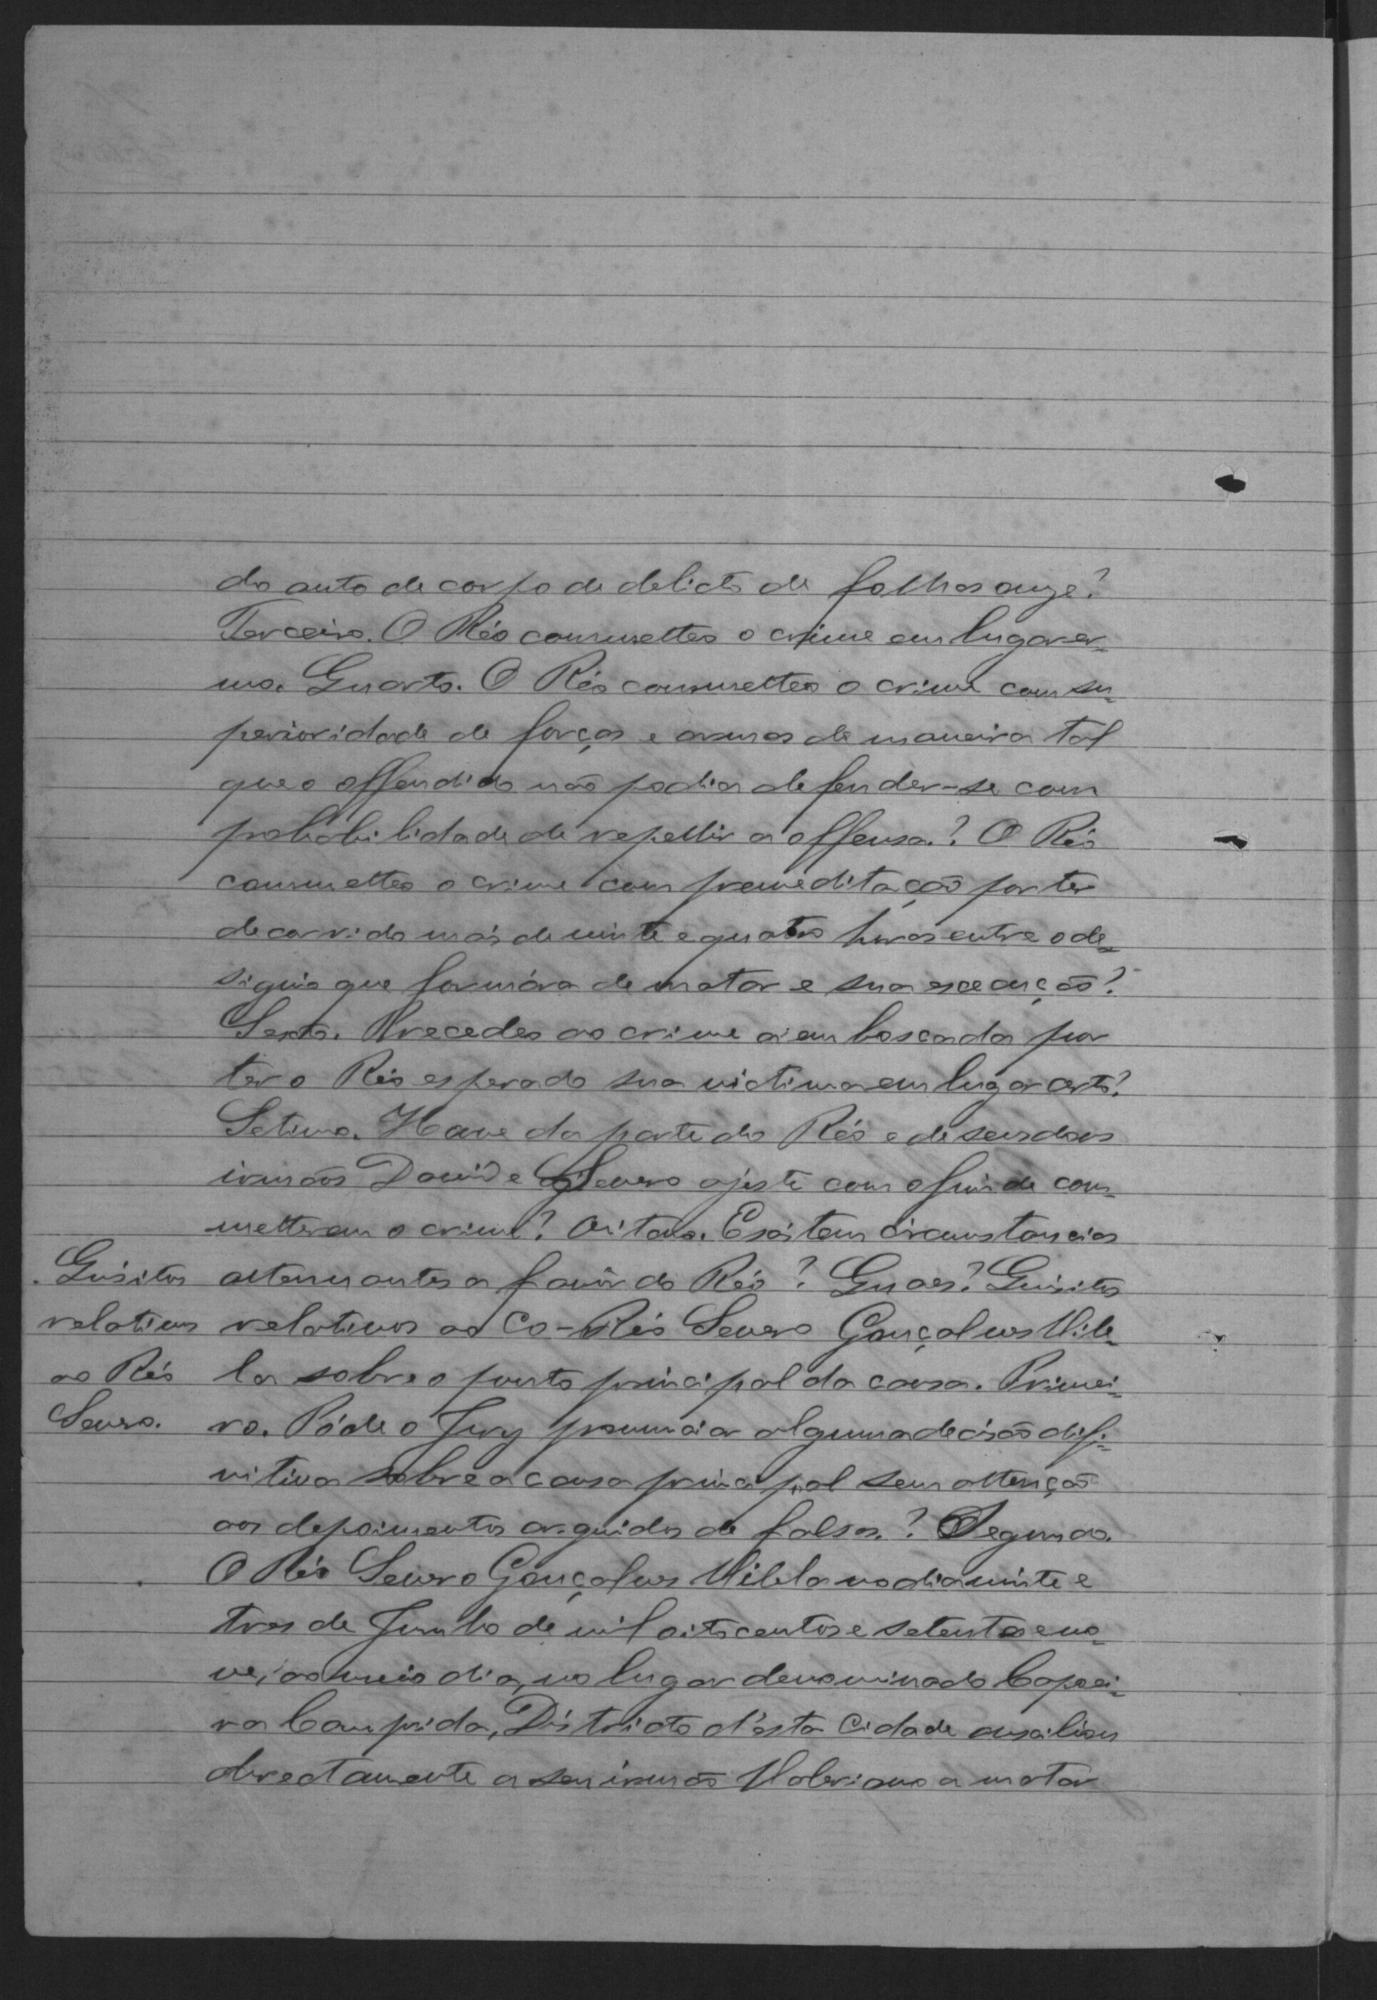 do auto de corpo de delicto de folhas onze?
Terceiro. O Réo commetteo o crime em lugar er-
mo. Quarto. O Réo commetteo o crime com su-
perioridade de forças e armas de maneira tal
que o offendido não podia defender-se com
probabilidade de repellir a offensa.? O Réo
commetteo o crime com premeditação por ter
decorrido mais de vinte e quatro horas entre o de-
signio que formára de matar e sua execução?
Sexto. Precedeo ao crime a emboscada por
ter o Réo esperado sua victima em lugar certo?
Setimo. Houve da parte do Réo e de seus dous
irmãos David e Severo ajuste com o fim de com-
metterem o crime? Oitavo. Existem circunstancias
attenuantes a favôr do Réo? Quaes? Quisitos
relativos ao Co-Réo Severo Gonçalves Vile-
la sobre o ponto principal da causa. Primei-
ro. Póde o Jury pronunciar alguma decisão difi-
nitiva sobre a causa principal sem attenção
aos depoimentos arguidos de falsos.? Segundo.
O Réo Severo Gonçalves Vilela no dia vinte e
tres de Junho de mil oitocentos e setenta e no-
ve, ao meio dia, no lugar denominado Capoei-
ra Comprida, Districto d'esta Cidade auxiliou
directamente a seu irmão Valeriano a matar
Quisitos
relativos
ao Réo
Severo.